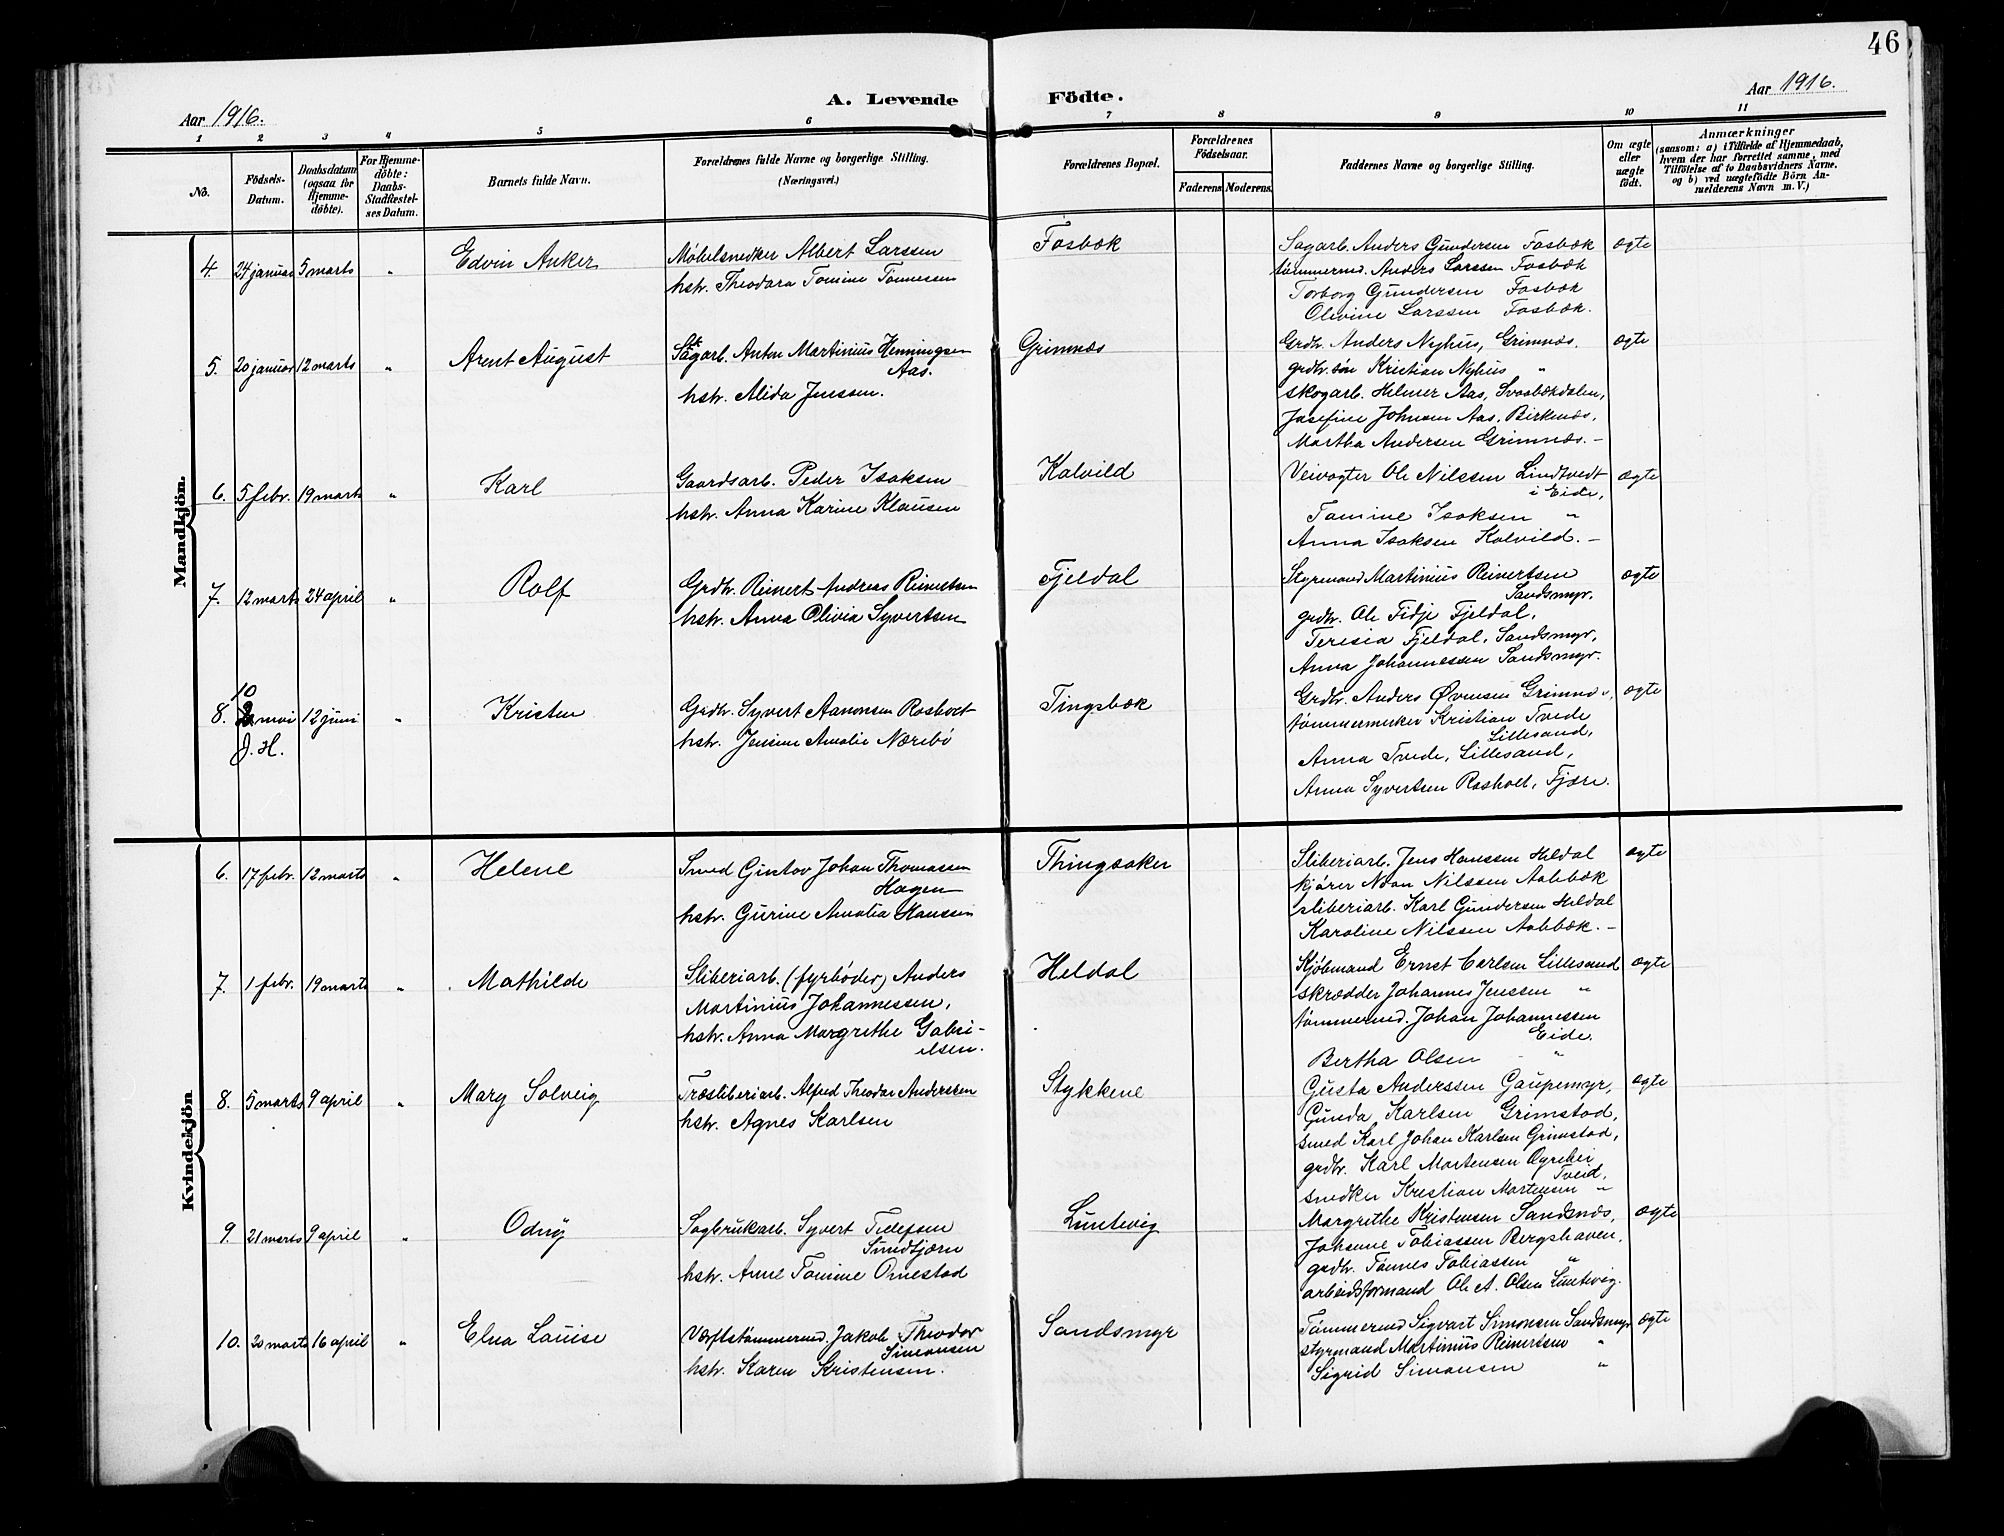 46
Aar 1916.
A. Levende Födte.
Aar 1916.
1 2 3 4 5 6 7 8 9 10 11
No.
Födsels-
Datum.
Daabsdatum
(ogsaa for
Hjemme-
døbte).
For Hjemme-
døbte:
Daabs-
Stadfæstel-
ses Datum.
Barnets fulde Navn.
Forældrenes fulde Navne og borgerlige Stilling.
(Næringsvei.)
Forældrenes Bopæl.
Forældrenes
Födselsaar.
Faderens. Moderens.
Faddernes Navne og borgerlige Stilling.
Om ægte
eller
uægte
født.
Anmærkninger
(saasom: a) i Tilfælde af Hjemmedaab,
hvem der har forrettet samme, med
Tilföielse af to Daabsvidners Navne.
og b) ved uægtefödte Börn An-
melderens Navn m. V.)
Mandkjön.
4. 24 januar 5 marts " Edvin Anker Møbelsnedker Albert Larssen Fosbæk Sagarb. Anders Gundersen Fosbæk ægte
hstr. Theodora Tomine Tønnesen tømmermd. Anders Larssen Fosbæk
Torborg Gundersen Fosbæk
Olivine Larssen Fosbæk.
5. 20 januar 12 marts " Arent August Sagarb. Anton Martinius Henningsen Grimnæs Grdbr. Anders Nyhus, Grimnæs. ægte
Aas. grdbr. søn Kristian Nyhus "
hstr. Alida Jenssen. skogarb. Helmer Aas, Svaabækdalen,
Josefine Johnsen Aas, Birkenæs,
Martha Andersen Grimnæs. -
6. 5 febr. 19 marts " Karl Gaardsarb. Peder Isaksen Kalvild Veivogter Ole Nilssen Lindtvedt ægte
hstr. Anna Karine Klausen i Eide,
Tomine Isaksen "
Anna Isaksen Kalvild. -
7. 12 marts 24 april " Rolf Grdbr. Reinert Andreas Reinertsen Fjeldal Styrmand Martinius Reinertsen ægte
hstr. Anna Olivia Syvertsen Sandsmyr.
grdbr. Ole Fidje Fjeldal,
Teresia Fjeldal, Sandsmyr,
Anna Johannessen Sandsmyr.
10
8. mai 12 juni " Kristen Grdbr. Syvert Aanonsen Rosholt Tingsbæk Grdbr. Anders Øvensen ægte
J. H. hstr. Jensine Amalie Næribø tømmermerker Kristian Tvede
Lillesand,
Anna Tvede, Lillesand,
Anna Syvertsen Rosholt, Fjære.
Kvindekjön
6. 17 febr. 12 marts " Helene Smed Gustav Johan Thomassen Thingsaker Sliberiarb. Jens Hanssen Heldal ægte
Hagen kjører Noan Nilssen Aabbæk
hstr. Gurine Amalia Hanssen sliberiarb. Karl Gundersen Heldal
Karoline Nilssen Aabbæk. -
7. 1 febr. 19 marts " Mathilde Sliberiarb. (fyrbøder) Anders Heldal Kjøbmand Ernst Carlsen Lillesand ægte
Martinius Johannessen, skrædder Johannes Jenssen "
hstr. Anna Margrethe Gabri- tømmermd. Johan Johannessen
elsen. Eide.
Bertha Olsen "
8. 5 marts 9 april " Mary Solveig Træsliberiarb. Alfred Theodor Anderssen Stykkene Gusta Anderssen Gaupemyr, ægte
hstr. Agnes Karlsen Gunda Karlsen Grimstad,
smed Karl Johan Karlsen Grimstad,
grdbr. Karl Mortensen Øyrebei
Tveid,
snedker Kristian Mortensen "
9. 21 marts 9 april " Odny Sagbruksarb. Syvert Tellefsen Luntevig Margrethe Kristensen Sandsnæs, ægte
Sundtjørn Johanne Tobiassen Bergshaven,
hstr. Anne Tomine Omestad grdbr. Tønnes Tobiassen "
arbeidsformand Ole A. Olsen Luntevig.
10. 20 marts 16 april " Elna Louise Værftstømmermd. Jakob Theodor Sandsmyr Tømmermd Sigvart Simonsen Sandsmyr ægte
Simonsen styrmand Martinius Reinertsen "
hstr. Karen Kristensen. Sigrid Simonsen "